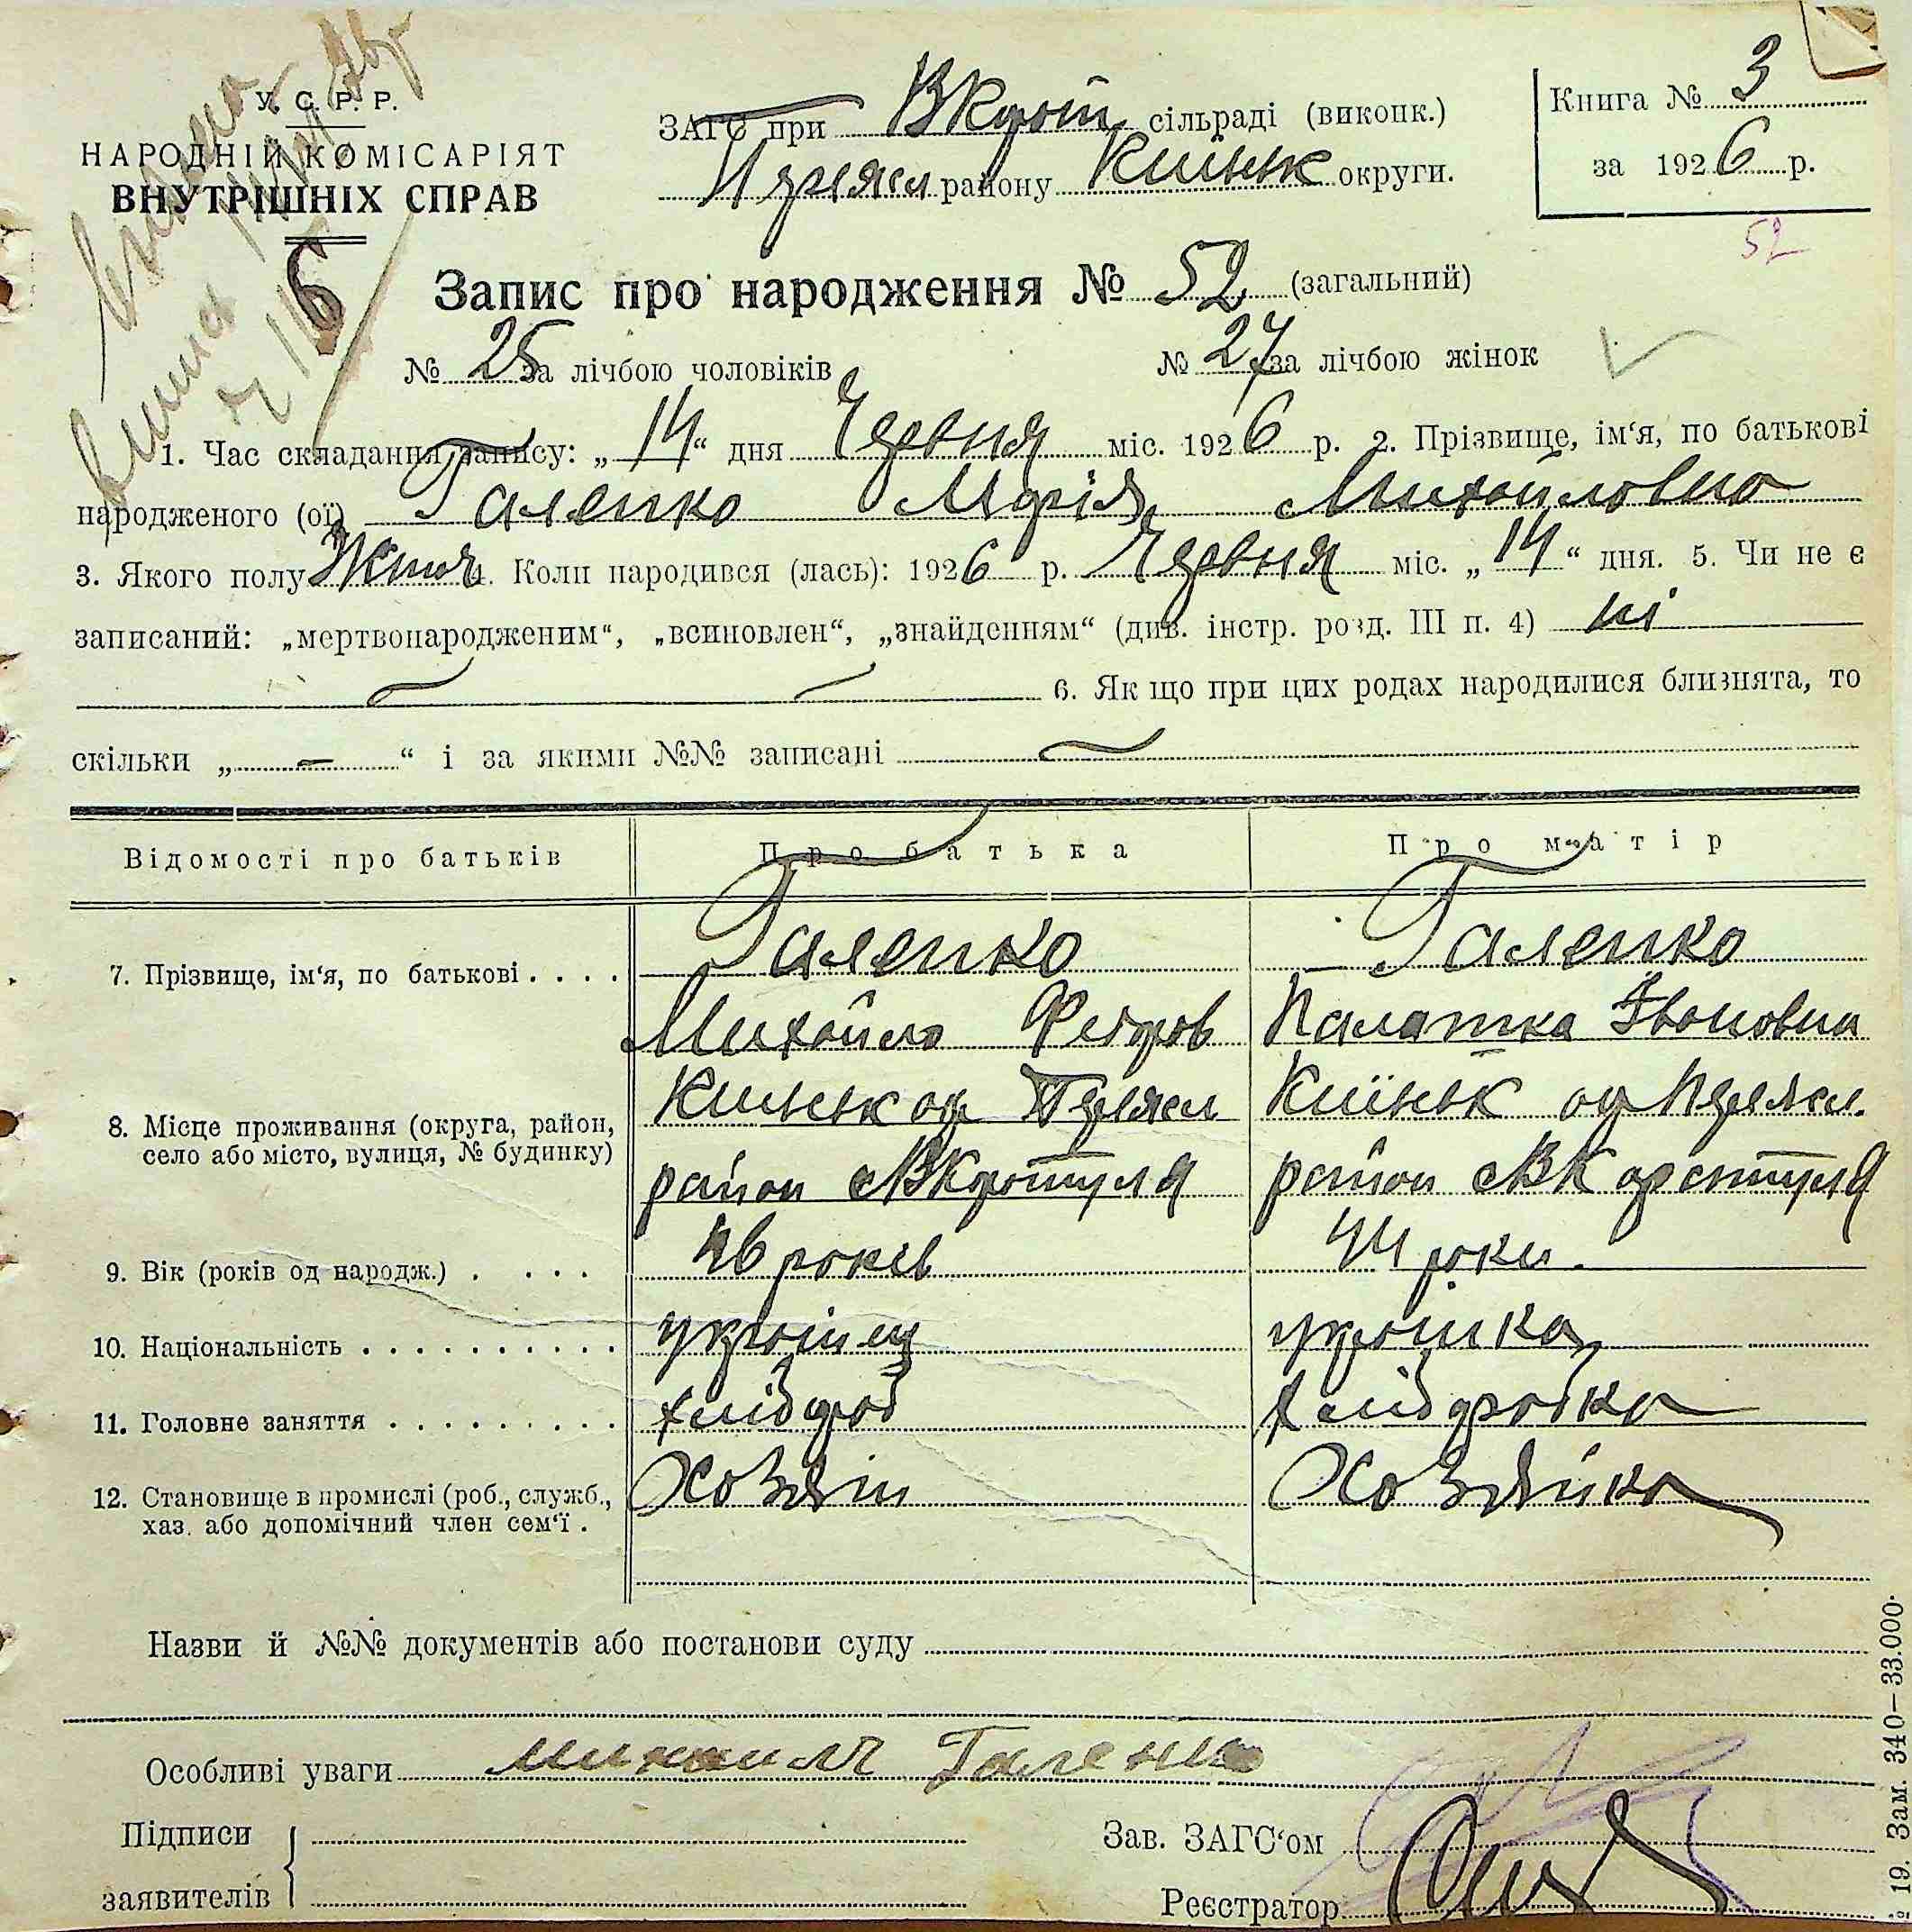 У. С. Р. Р.
НАРОДНІЙ КОМІСАРІЯТ
ВНУТРІШНІХ СПРАВ
6
ЗАГС при ВКарат сільраді (виконк.)
Переясл району Киівськ округи.
Книга № 3
за 1926 р.
52
Запис про народження № 52 (загальний)
№ 25 за лічбою чоловіків № 27 за лічбою жінок
1. Час складання запису: „14“ дня Червня міс. 1926 р. 2. Прізвище, ім‘я, по батькові
народженого (ої) Галенко Марія Михайловна
3. Якого полу Жіноч. Коли народився (лась): 1926 р. Червня міс. „14“ дня. 5. Чи не є
записаний: „мертвонародженим“, „всиновлен“, „знайденням“ (див. інстр. розд. III п. 4) ні
6. Як що при цих родах народилися близнята, то
скільки „ – “ і за якими №№ записані
Відомості про батьків Про батька Про матір
7. Прізвище, ім‘я, по батькові . . . . Галенко Галенко
Михайло Федоров Палажка Івановна
8. Місце проживання (округа, район, село або місто, вулиця, № будинку) Киівськ ок Переясл Киівськ ок Переясл.
район с ВКаратуля район с ВКаратуля
9. Вік (років од народж.) . . . . 46 років 44 роки.
10. Національність . . . . . . . . . . українец українка
11. Головне заняття . . . . . . . . . хлібороб хліборобка
12. Становище в промислі (роб., служб., хаз. або допомічний член сем‘ї . Хозяін Хозяйка
Назви й №№ документів або постанови суду
Особливі уваги Галенко
Підписи
заявителів
Зав. ЗАГС‘ом
Реєстратор
19. Зам. 340—33.000.